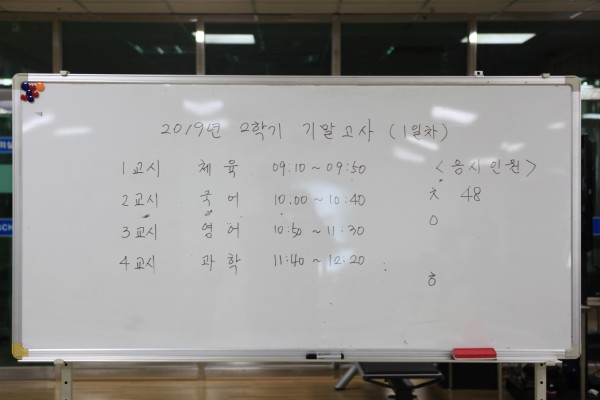 2019년 2학기 기말고사 (1일차)
1교시 체육 09.10 ~ 09:50
<응시인원>
2교시 국어 10.00 ~ 10:40
ㅊ 48
3교시 영어 10:50 ~ 11:30
ㅇ
4교시 과학 11:40 ~ 12:20
ㅎ